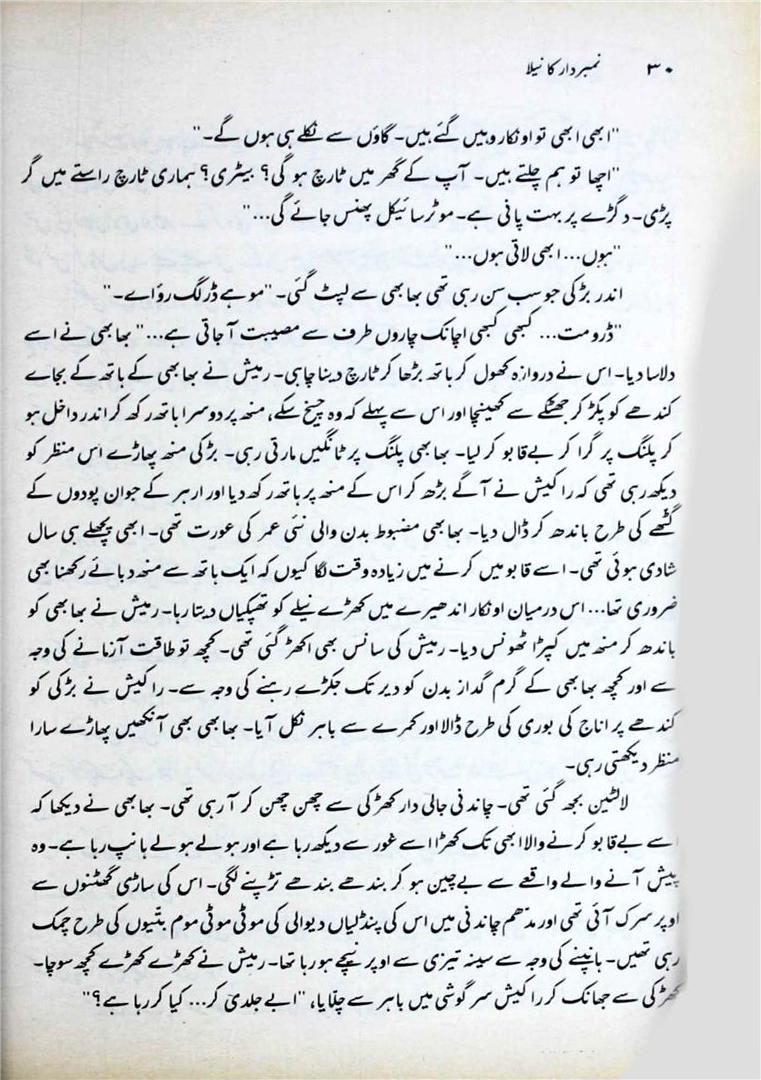 ۳۰ نمبردار کا نیلا
"ابھی ابھی تو اونکار وہیں گئے ہیں۔ گاؤں سے نکلے ہی ہوں گے۔"
"اچھا تو ہم چلتے ہیں۔ آپ کے گھر میں ٹارچ ہو گی؟ بیٹری؟ ہماری ٹارچ راستے میں گر
پڑی۔ دگڑے پر بہت پانی ہے۔ موٹر سائیکل پھنس جائے گی..."
"ہوں... ابھی لاتی ہوں..."
اندر بڑکی جو سب سن رہی تھی بھابھی سے لپٹ گئی۔ "موہے ڈر لگ رو اے۔"
"ڈرو مت... کبھی کبھی اچانک چاروں طرف سے مصیبت آ جاتی ہے..." بھابھی نے اسے
دلاسا دیا۔ اس نے دروازہ کھول کر ہاتھ بڑھا کر ٹارچ دینا چاہی۔ رمیش نے بھابھی کے ہاتھ کے بجائے
کندھے کو پکڑ کر جھٹکے سے کھینچا اور اس سے پہلے کہ وہ چیخ سکے، منھ پر دوسرا ہاتھ رکھ کر اندر داخل ہو
کر پلنگ پر گرا کر بے قابو کر لیا۔ بھابھی پلنگ پر ٹانگیں مارتی رہی۔ بڑکی منھ پھاڑے اس منظر کو
دیکھ رہی تھی کہ راکیش نے آگے بڑھ کر اس کے منھ پر ہاتھ رکھ دیا اور ارہر کے جوان پودوں کے
گٹھے کی طرح باندھ کر ڈال دیا۔ بھابھی مضبوط بدن والی نئی عمر کی عورت تھی۔ ابھی پچھلے ہی سال
شادی ہوئی تھی۔ اسے قابو میں کرنے میں زیادہ وقت لگا کیوں کہ ایک ہاتھ سے منھ دبائے رکھنا بھی
ضروری تھا... اس درمیان اونکار اندھیرے میں کھڑے نیلے کو تھپکیاں دیتا رہا۔ رمیش نے بھابھی کو
باندھ کر منھ میں کپڑا ٹھونس دیا۔ رمیش کی سانس بھی اکھڑ گئی تھی۔ کچھ تو طاقت آزمانے کی وجہ
سے اور کچھ بھابھی کے گرم گداز بدن کو دیر تک جکڑے رہنے کی وجہ سے۔ راکیش نے بڑکی کو
کندھے پر اناج کی بوری کی طرح ڈالا اور کمرے سے باہر نکل آیا۔ بھابھی بھی آنکھیں پھاڑے سارا
منظر دیکھتی رہی۔
لالٹین بجھ گئی تھی۔ چاندنی جالی دار کھڑکی سے چھن چھن کر آ رہی تھی۔ بھابھی نے دیکھا کہ
اسے بے قابو کرنے والا ابھی تک کھڑا اسے غور سے دیکھ رہا ہے اور ہولے ہولے ہانپ رہا ہے۔ وہ
پیش آنے والے واقعے سے بے چین ہو کر بندھے بندھے تڑپنے لگی۔ اس کی ساڑی گھٹنوں سے
اوپر سرک آئی تھی اور مدھم چاندنی میں اس کی پنڈلیاں دیوالی کی موٹی موٹی موم بتّیوں کی طرح چمک
رہی تھیں۔ ہانپنے کی وجہ سے سینہ تیزی سے اوپر نیچے ہو رہا تھا۔ رمیش نے کھڑے کھڑے کچھ سوچا۔
کھڑکی سے جھانک کر راکیش سرگوشی میں باہر سے چلّایا، "ابے جلدی کر... کیا کر رہا ہے؟"